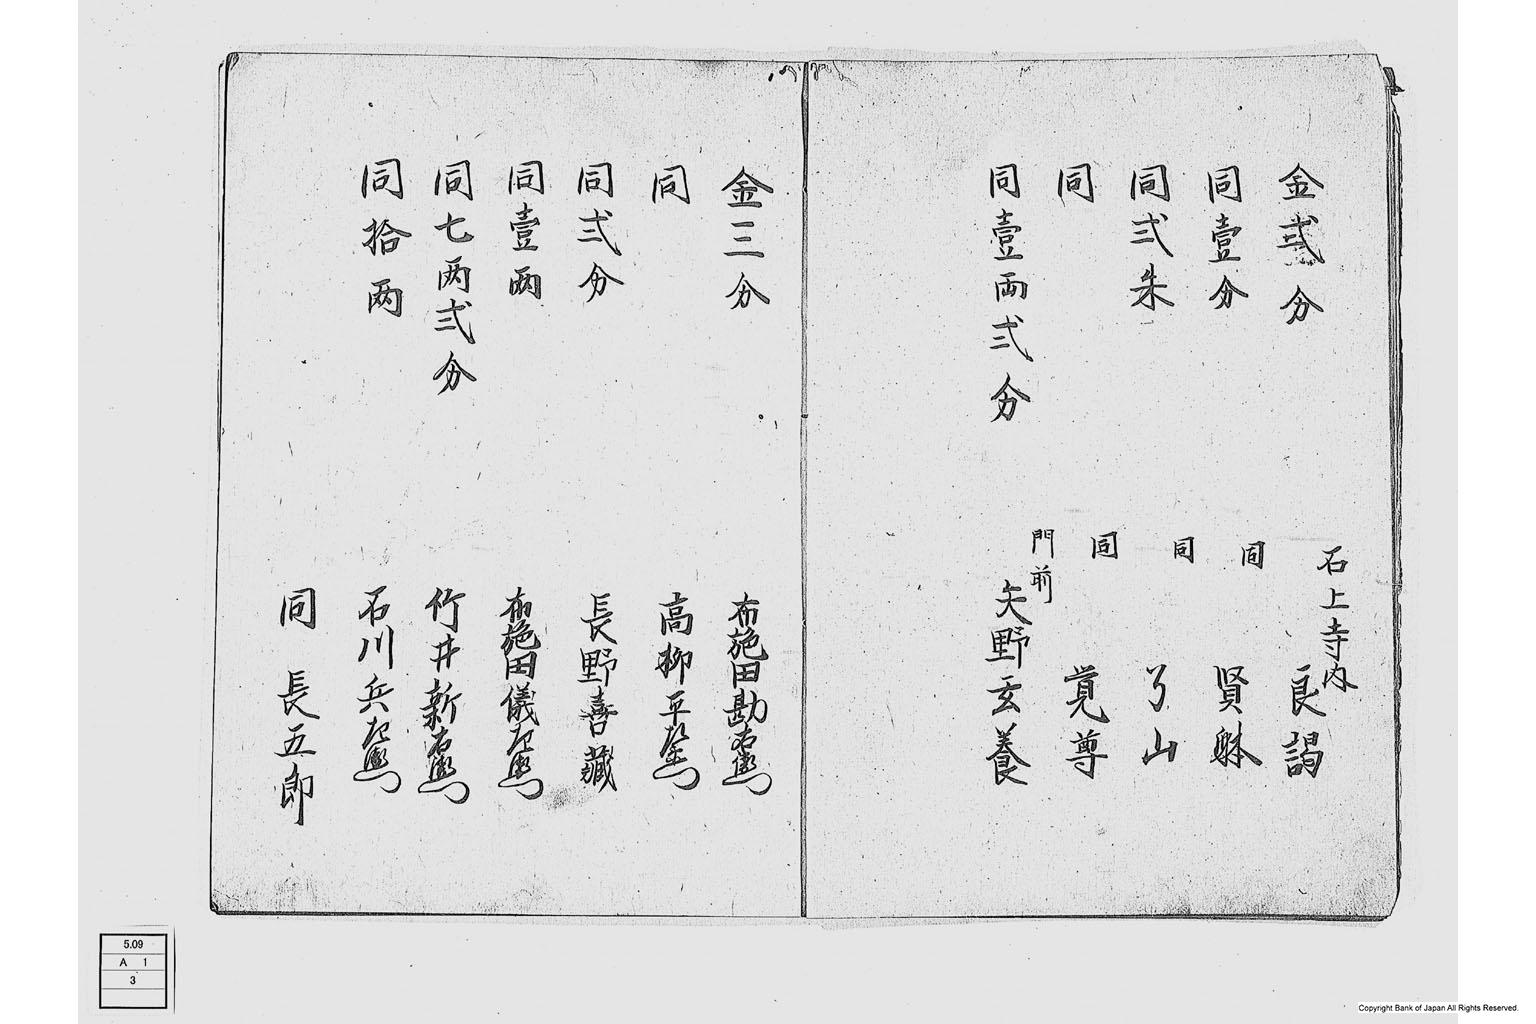 金弐分
石上寺内
良謁
同壹分
同
賢海
同弐朱
同
了山
同
同
覚尊
同壹両弐分
門前
矢野玄養
金三分
布施田勘右衛門
同
高柳平左衛門
同弐分
長野喜藏
同壹両
布施田儀左衛門
同七両弐分
竹井新右衛門
同拾両
石川兵左衛門
同 長五郎
5.09
A 1
3
Copyright Bank of Japan All Rights Reserved.